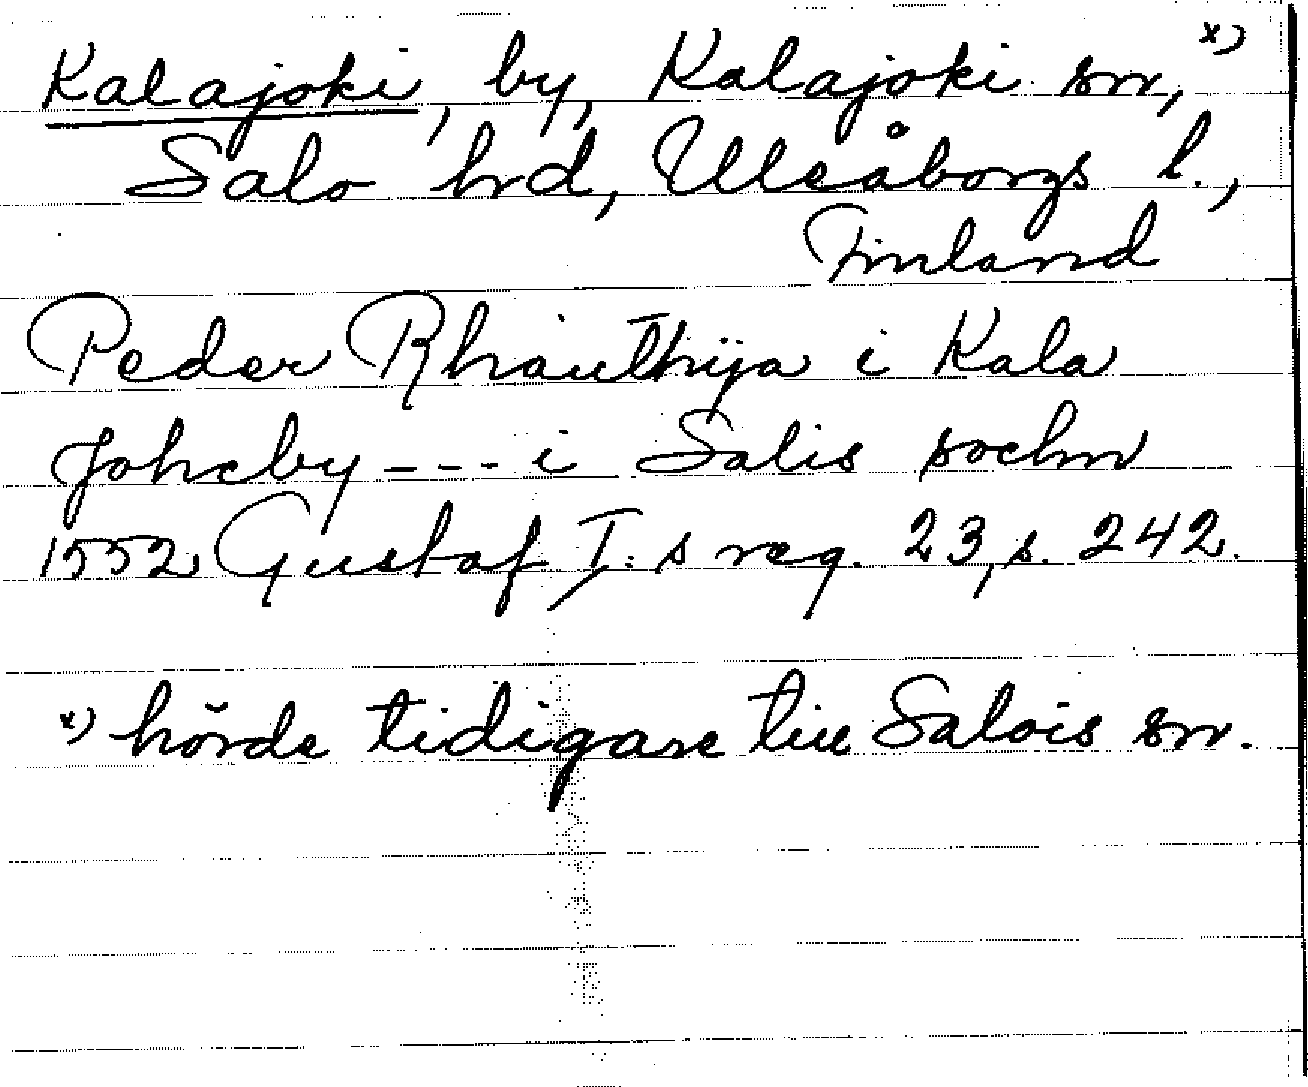 Kalajoki, by, Kalajoki sn, x)
Salo hrd, Uleåborgs l.,
Finland
Peder Rhauthija i Kala
Johcby --- i Salis sochn
1552 Gustaf I:s reg. 23, s. 242.
x) hörde tidigare till Salois sn.